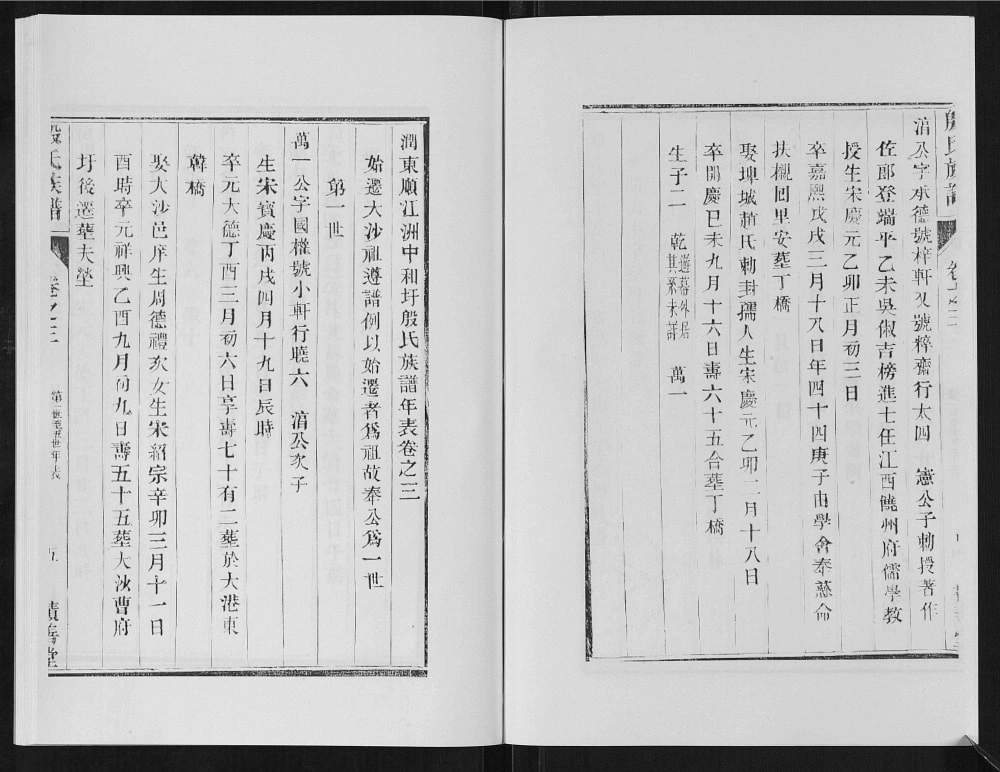 殷氏族譜
涓公字承德號梓軒又號粹齋行太四 憲公子勅授著作
佐郎登端平乙未吳俶吉榜進士任江西饒州府儒學教
授生宋慶元乙卯正月初三日
卒嘉熙戊戌三月十八日年四十四庚子由學會奉慈命
扶櫬回里安塟丁橋
娶埤城趙氏勅封孺人生宋慶元乙卯二月十八日
卒開慶巳未九月十六日壽六十五合塟丁橋
生子二 乾遊幕外居其系未詳 萬一
潤東順江洲中和圩殷氏族譜年表卷之三
始遷大沙祖遵譜例以始遷者爲祖故奉公爲一世
第一世
萬一公字國權號小軒行曉六 涓公次子
生宋寳慶丙戌四月十九日辰時
卒元大德丁酉三月初六日享壽七十有二塟於大港東
韓橋
娶大沙邑庠生周德禮次女生宋紹宗辛卯三月十一日
酉時卒元祥興乙酉九月初九日壽五十五塟大沙曹府
圩後遷塟夫塋
殷氏族譜
卷之三
第一世至五世年表
五
積善堂